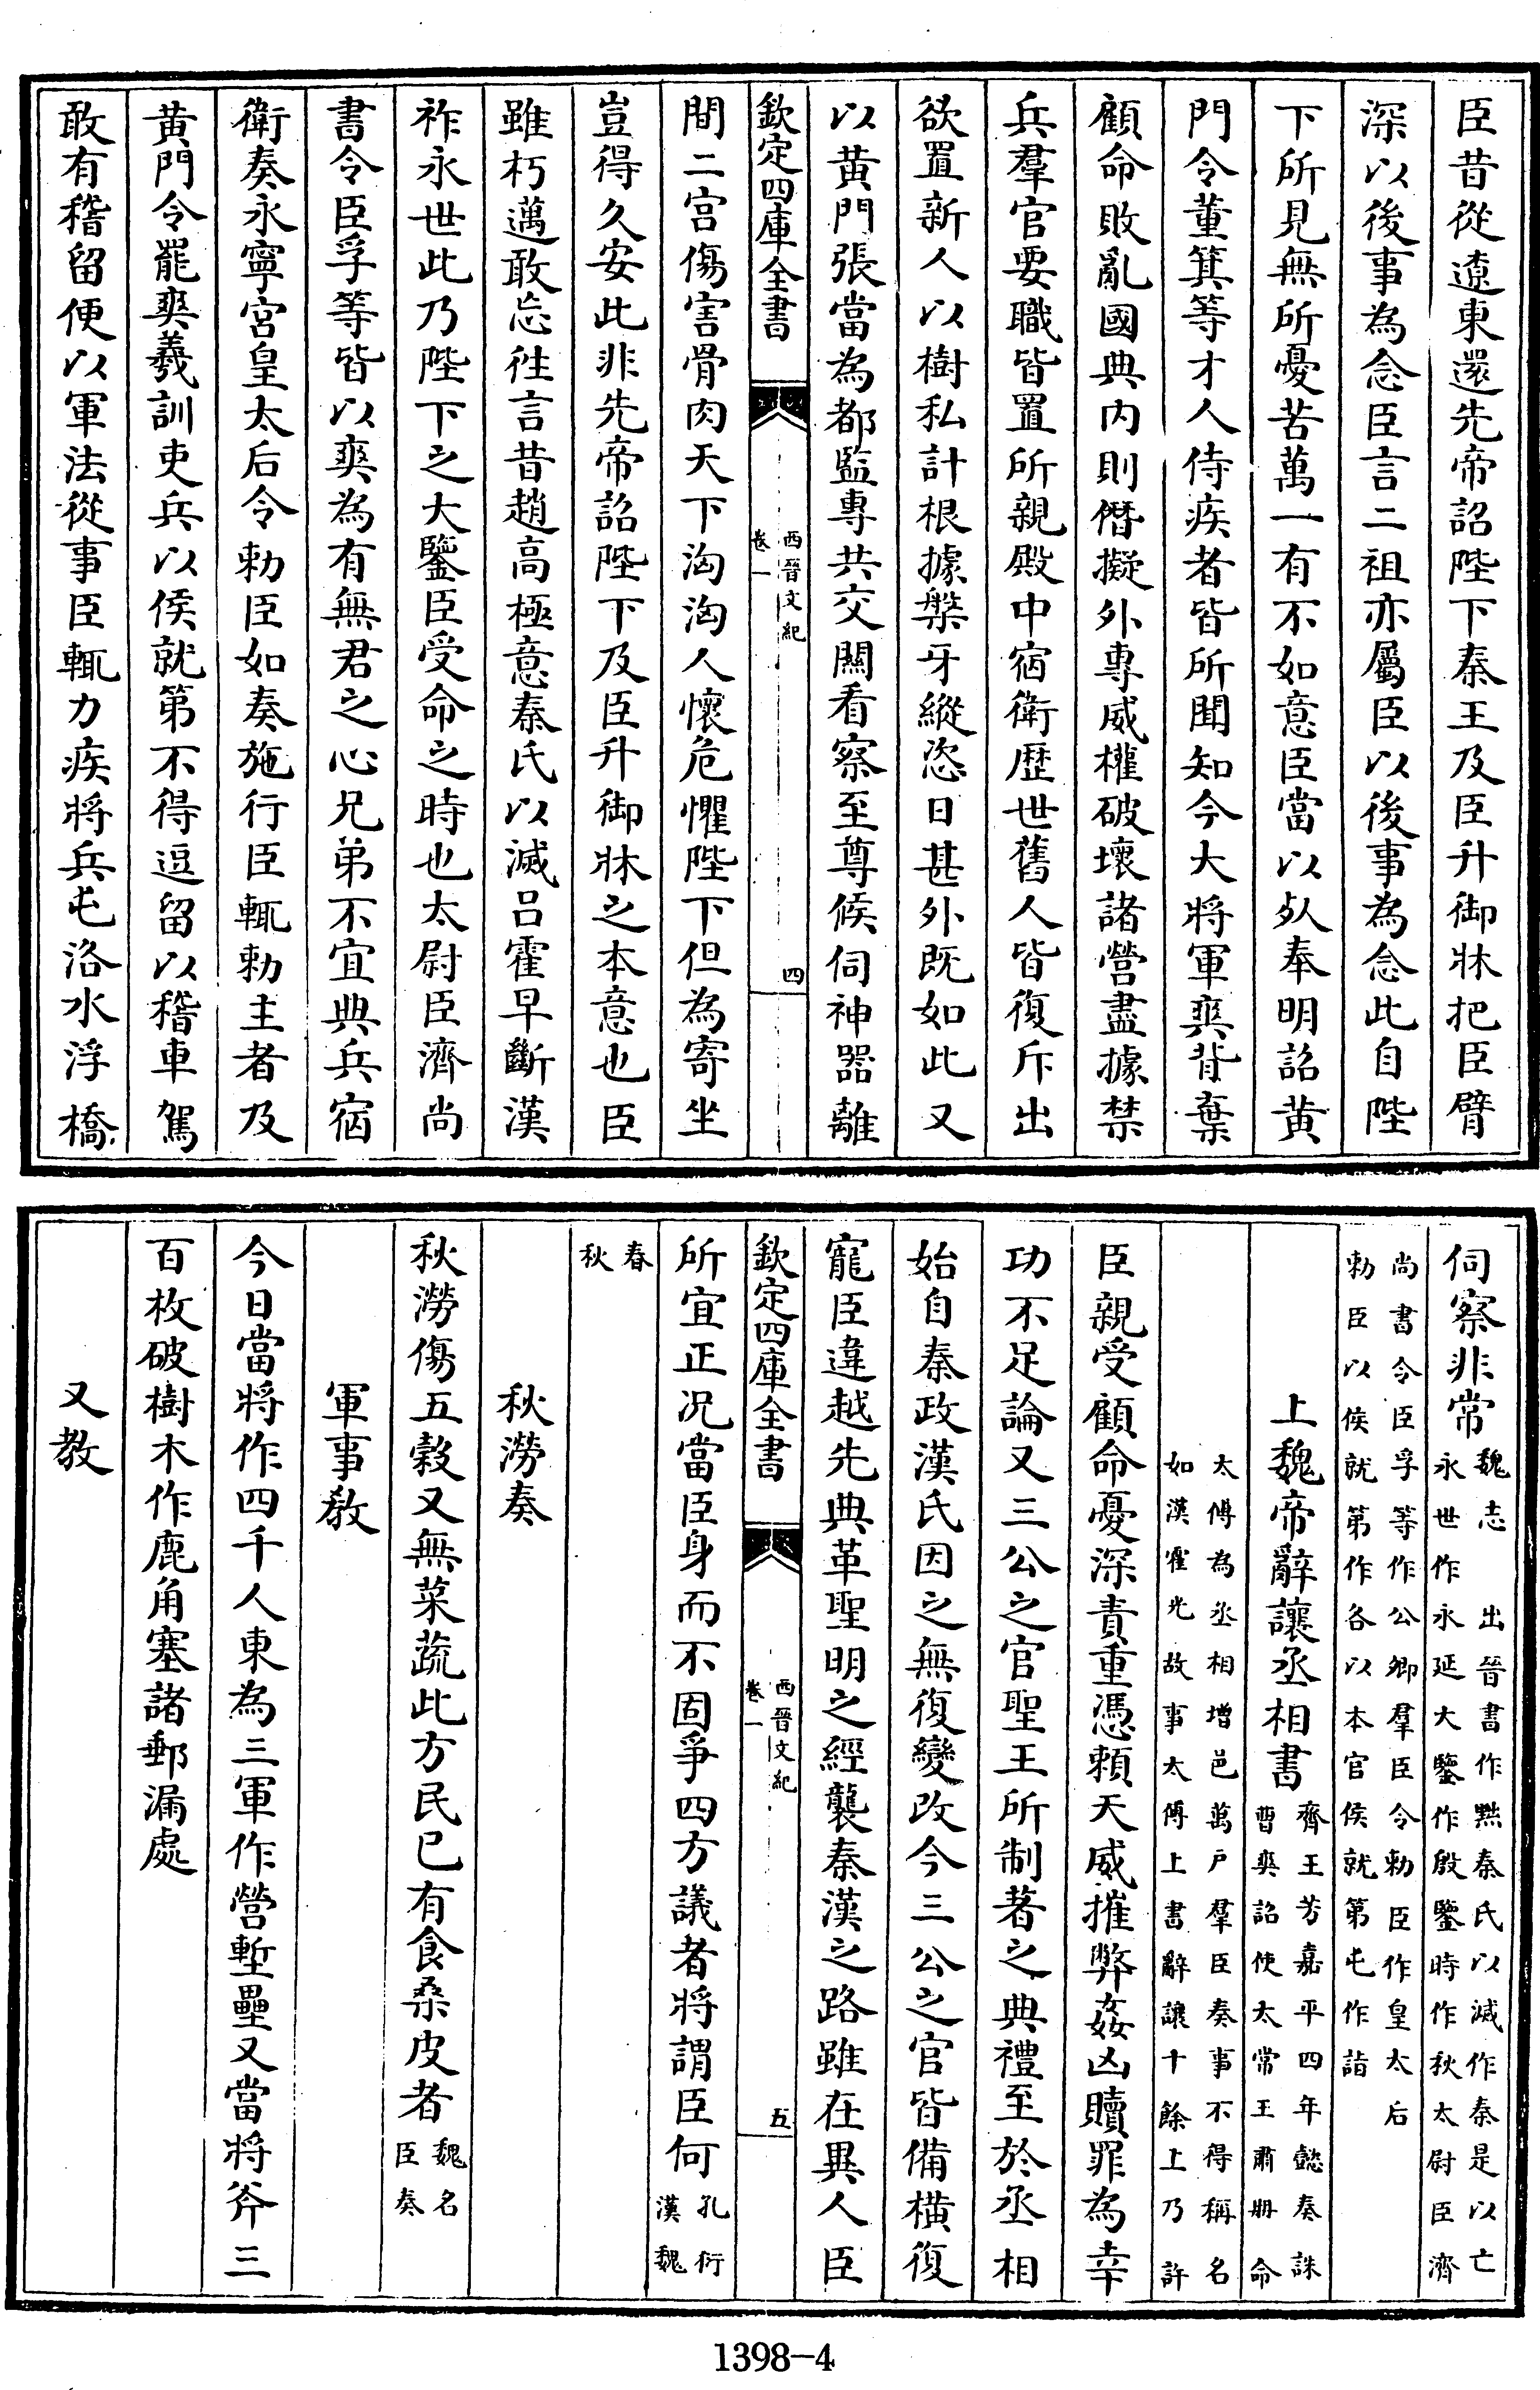 臣昔從遼東還先帝詔陛下秦王及臣升御牀把臣臂
深以後事為念臣言二祖亦屬臣以後事為念此自陛
下所見無所憂苦萬一有不如意臣當以死奉明詔黄
門令董箕等才人侍疾者皆所聞知今大將軍爽背棄
顧命敗亂國典内則僭擬外專威權破壞諸營盡據禁
兵羣官要職皆置所親殿中宿衛歴世舊人皆復斥出
欲置新人以樹私計根據槃牙縱恣日甚外既如此又
以黄門張當為都監專共交關看察至尊候伺神器離
欽定四庫全書
西晉文紀
卷一
四
間二宫傷害骨肉天下洶洶人懷危懼陛下但為寄坐
豈得久安此非先帝詔陛下及臣升御牀之本意也臣
雖朽邁敢忘徃言昔趙高極意秦氏以滅吕霍早斷漢
祚永世此乃陛下之大鑒臣受命之時也太尉臣濟尚
書令臣孚等皆以爽為有無君之心兄弟不宜典兵宿
衛奏永寧宫皇太后令勅臣如奏施行臣輒勅主者及
黄門令罷爽羲訓吏兵以侯就第不得逗留以稽車駕
敢有稽留便以軍法從事臣輒力疾將兵屯洛水浮橋
伺察非常
魏志　出晉書作黙秦氏以滅作秦是以亡
永世作永延大鑒作殷鑒時作秋太尉臣濟
尚書令臣孚等作公卿羣臣令勅臣作皇太后
勅臣以侯就第作各以本官侯就第屯作詣
上魏帝辭讓丞相書
齊王芳嘉平四年懿奏誅
曹爽詔使太常王肅册命
太傅為丞相增邑萬户羣臣奏事不得稱名
如漢霍光故事太傅上書辭讓十餘上乃許
臣親受顧命憂深責重憑頼天威摧弊姦凶贖罪為幸
功不足論又三公之官聖王所制著之典禮至於丞相
始自秦政漢氏因之無復變改今三公之官皆備横復
寵臣違越先典革聖明之經襲秦漢之路雖在異人臣
欽定四庫全書
西晉文紀
卷一
五
所宜正况當臣身而不固爭四方議者將謂臣何
孔衍
漢魏
春
秋
秋澇奏
秋澇傷五穀又無菜蔬此方民已有食桑皮者
魏名
臣奏
軍事教
今日當將作四千人東為三軍作營塹壘又當將斧三
百枚破樹木作鹿角塞諸郵漏處
又教
1398-4